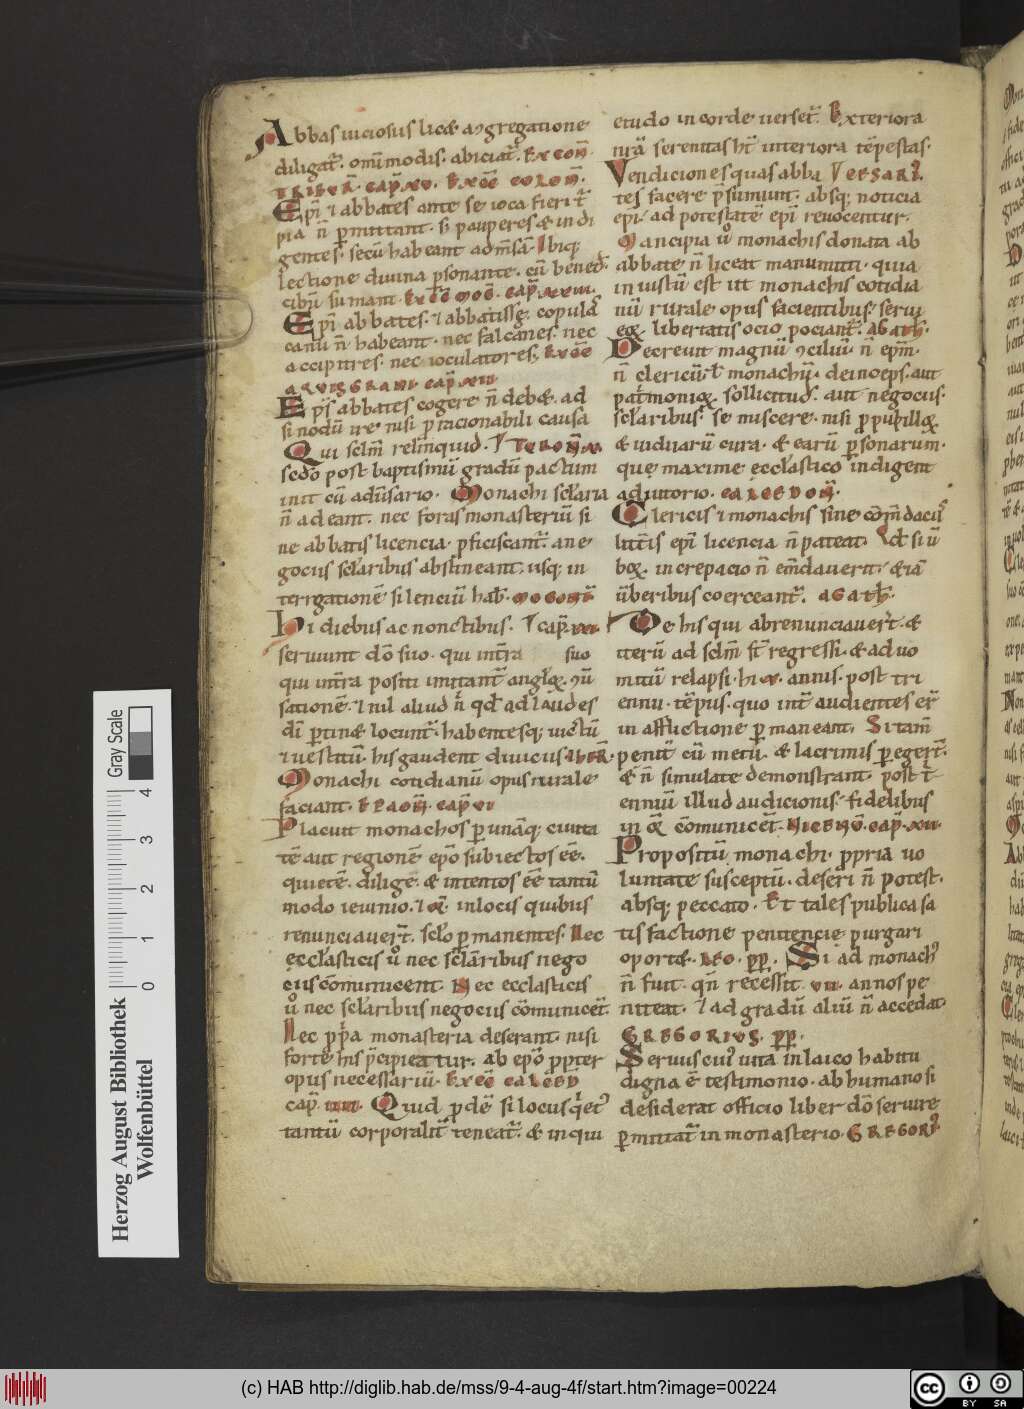 Abbas uiciosus licæ a ꝯgregatione
diligat᷑. omīmodis. abiciat᷑. EX CON̄.
TRIBUR̄. CAP̄. XV. EXCĒ COLON̄.
Epī ⁊ abbates ante se ioca fieri t᷑
pia n̄ ꝑmittant. sꝫ pauperes & indi
gentes. secū habeant admēsā. Ibiqꝫ
lectione diuina ꝑsonante. cū bened̄.
cibū sumant. EXCĒ MOḠ. CAP̄. XXIII.
Epī abbates. ⁊ abbatissę. copulā
canū n̄ habeant. nec falcones. nec
accipitres. nec ioculatores. EXCĒ
AQVISGRANI CAP̄ XII
Ep̄s abbates cogere n̄ deb&. ad
sinodū ire nisi ꝓ racionabili causa
Qui sclm̄ relinquid.
scdo post baptismū gradū pactum
init cū adūsario. Monachi sclaria
n̄ adeant. nec foras monasteriū si
ne abbatis licencia. pficiscant᷑. a ne
gociis sclaribus abstineant. usqꝫ in
terrgationē silenciū hab̄. MOGONT̄
Hi diebus ac nonctibus. CAP̄. VII.
seruiunt dō suo. qui int̄ra suo
qui int̄ra positi imitant᷑ anglꝝ. ꝯū
sationē. ⁊ nil aliud n̄ qd ad laudes
dī ꝑtin& locunt᷑. habentesqꝫ uictū
⁊ uestitū. his gaudent diuiciis. IBER̄.
Monachi cotidianū opus rurale
faciant. BRAON̄. CAP̄ VI
Placuit monachos ꝑ unāqꝫ ciuita
tē aut regionē epō subiectos eē.
quietē. diligē. & intentos eē tantū
modo ieiunio. ⁊ or̄. in locis quibus
renunciauer̄t. sclo ꝑmanentes. Nec
ęcclasticis ů nec scłaribus nego
ciis cōmunicent. Nec ecclasticis
ů nec sclaribus negociis cōmunicēt.
Nec ꝓp̄a monasteria deserant. nisi
forte his p̄cipieattur. ab epō ꝓpter
opus necessariū. EXCĒ CALCED̄
CAP̄. IIII. Quid ꝓdē si locus q̇et᷒
tantū corporalit᷑ teneat᷑. & inqui
etudo in corde uerset᷑. Exteriora
nr̄ā serenitas hn̄t interiora tēpestas.
Vendiciones quas abba VERSARI᷒.
tes facere p̄sumunt. absqꝫ noticia
epi. ad potestatē epī reuocentur.
Mancipia ů monachis donata ab
abbate n̄ liceat manumitti. quia
iniustū est ut monachis cotidia
nū rurale. opus facientibus. serui
eoꝝ. libertatis ocio pociant᷑. AGATH.
Decreuit magnū ꝯciliū. n̄ epm̄.
n̄ clericū. l̄ monachū. deinceps. aut
patͥmonioꝝ. sollicitud̄. aut negociis.
scłaribus. se miscere. nisi ꝓ pupilloꝝ
& uiduarū cura. & earū ꝑsonarum.
quę maxime ęcclastico indigent
adiutorio. CALCEDON̄.
Clericis ⁊ monachis sine com̄daciis
litt̄is epī licencia n̄ pateat.
boꝝ. increpacio n̄ em̄dauerit. &iā
ūberibus coerceant᷑. AGATH.
De his qui abrenunciauer̄t. &
iterū ad sclm̄ st̄ regressi. & ad uo
mitū relapsi. hi X. annis. post tri
ennii. tēpus. quo int᷑ audientes er̄
in afflictione ꝑmaneant. Si tam̄
penit᷑ cū metu. & lacrimis ꝑeger̄t.
& n̄ simulate demonstrant. post t̄
enniū illud audicionis. fidelibus
in or̄ cōmunicēt. NICEN̄. CAP̄. XII.
Propositū monachi. ꝓpria uo
luntate susceptū. deseri n̄ potest.
absqꝫ peccato. Et tales publica sa
tisfactione penitencie purgari
oport&. LEO. PP̄. Si ad monach᷒
n̄ fuit. qn̄ recessit. VII. annos pe
niteat. ⁊ ad gradū aliū n̄ accedat.
GREGORIUS. PP̄.
Seruus cui᷒ uita in laico habitu
digna ē testimonio. ab humano si
desiderat officio liber dō seruire
ꝑmittat᷑ in monasterio. GREGORI᷒
Herzog August Bibliothek
Wolfenbüttel
0 1 2 3 4
Gray Scale
(c) HAB http://diglib.hab.de/mss/9-4-aug-4f/start.htm?image=00224
cc BY SA